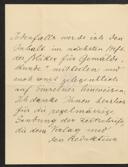 Jedenfalls werde ich den
Inhalt im nächsten Heft
der Blätter für Gemälde-
kunde" mitteilen und
noch gelegentlich
auf Einzelnes hinweisen.
Ich danke Ihnen herzlich
für die regelmässige
Sendung der Zeitschrift
die dem Verlag und
der Redaktion